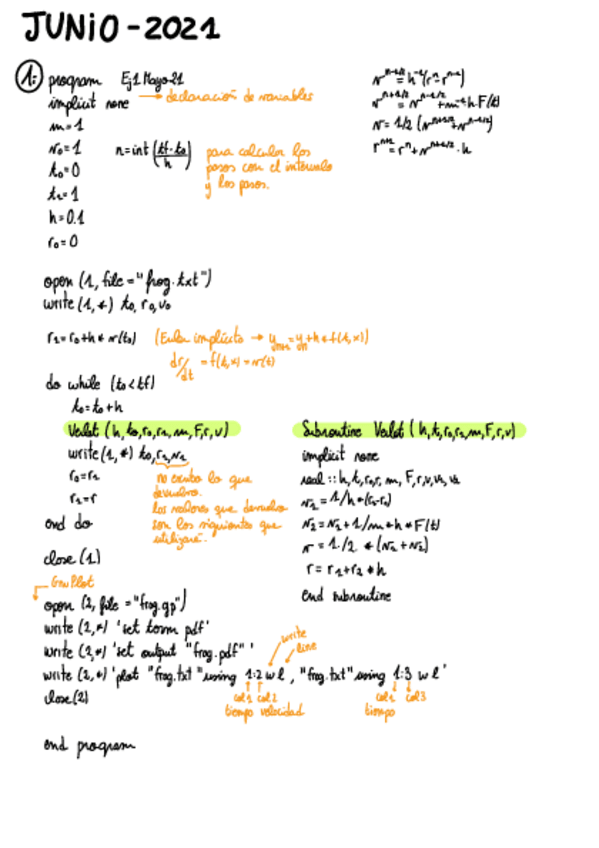 JUNIO - 2021
1. program Ej1 Mayo 21
implicit none → declaración de variables
m=1
v₀=1 n=int((tf-t₀)/h) para calcular los
pasos con el intervalo
y los pasos.
t₀=0
h=0.1
r₀=0
vⁿ⁻¹/² = h⁻¹(rⁿ-rⁿ⁻¹)
vⁿ⁺¹/² = vⁿ⁻¹/² + m⁻¹h F(t)
v = 1/2 (vⁿ⁺¹/² + vⁿ⁻¹/²)
rⁿ⁺¹ = rⁿ + vⁿ⁺¹/² · h
open (1, file = "frog.txt")
write (1, *) t₀, r₀, v₀
r₁ = r₀ + h * v(t₀) (Euler implícito →
dr/dt = f(t,x) = v(t)
do while (t₀ < tf)
t₀ = t₀ + h
Verlet (h, t₀, r₀, r₁, m, F, r, v)
write (1, *) t₀,
r₀ = r₁
r₁ = r
no escribo lo que
devuelvo.
los valores que devuelvo
son los siguientes que
utilizaré.
end do
close (1)
Subroutine Verlet (h, t, r₀, r₁, m, F, r, v)
implicit none
real :: h, t,
v₁ = 1/h *
v₂ = v₁ + 1/m * h * F(t)
v = 1./2. * (v₁ + v₂)
end subroutine
GnuPlot
open (2, file = "frog.gp")
write (2, *) 'set term pdf'
write (2, *) 'set output "frog.pdf" '
write
line
write (2, *) 'plot "frog.txt" using 1:2 w l, "frog.txt" using 1:3 w l '
col1 col2 col1 col3
tiempo velocidad tiempo
close (2)
end program